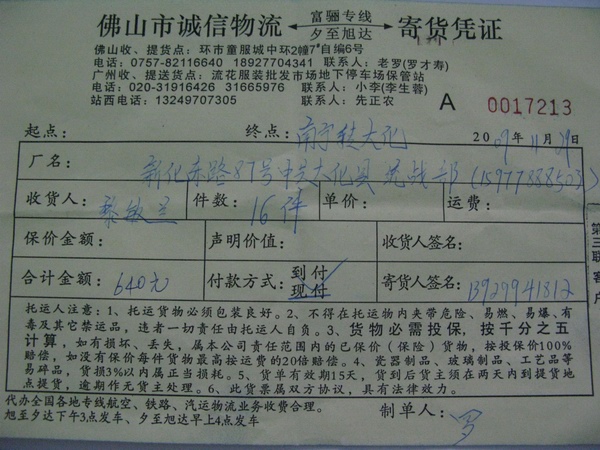 佛山市诚信物流 富骊专线 夕至旭达 寄货凭证
佛山收、提货点：环市童服城中环2幢7#自编6号
电话：0757-82116640 18927704341 联系人：老罗(罗才寿)
广州收、提送货点：流花服装批发市场地下停车场保管站
电话：020-31916426 31665976 联系人：小李(李生蓉)
站西电话：13249707305 联系人：先正农
A 0017213
起点： 终点：南宁转大化 2009年11月29日
厂名：新化东路87号中共大化县 (15977888503)
收货人：黎敏兰 件数：16件 单价： 运费：
保价金额： 声明价值： 收货人签名：
合计金额：640元 付款方式：到付 现付 寄货人签名：13929941812
托运人注意：1、托运货物必须包装良好。2、不得在托运物内夹带危险、易燃、易爆、有
毒及其它禁运品，违者一切责任由托运人自负。3、货物必需投保，按千分之五
计算，如有损坏、丢失，属本公司责任范围内的已保价（保险）货物，按投保价100%
赔偿，如没有保价每件货物最高按运费的20倍赔偿。4、瓷器制品、玻璃制品、工艺品等
易碎品，货损3%以内属正当损耗。5、货单有效期15天，货到后货主须在两天内到提货地
点提货，逾期作无货主处理。6、此货票属双方协议，具有法律效力。
代办全国各地专线航空、铁路、汽运物流业务收费合理。
旭至夕达下午3点发车、夕至旭达早上4点发车 制单人：罗
第三联 客户